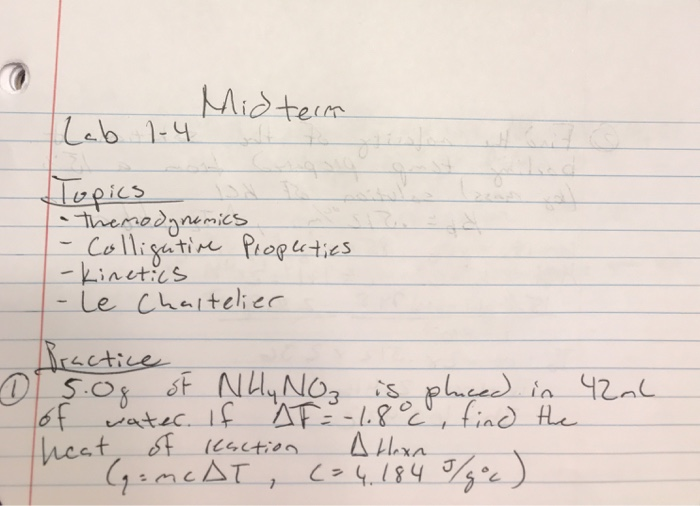 Midterm
Lab 1-4
Topics
- Themodynamics
- Colligative Properties
- Kinetics
- Le Chaltelier
Practice
① 5.0g of NH4NO3 is placed in 42mL
of water. If ΔT = -1.8°C, find the
heat of reaction ΔHrxn
(q=mcΔT, C=4.184 J/g°C)